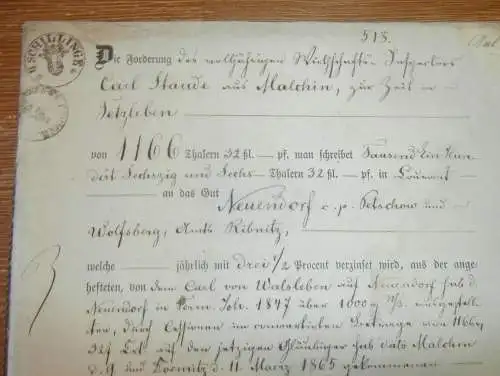 SCHILLINGE
518.
Die Forderung des volljährigen Wirthschafts-Inspectors
Carl Staude aus Malchin, zur Zeit in
Setzleben
von 1166 Thalern 32 ßl. — pf. man schreibet Tausend Ein Hun-
dert Sechszig und Sechs Thalern 32 ßl. — pf. in Louisd'or
an das Gut
Neuendorf c. p. Petschow und
Wolfsberg, Amts Ribnitz,
welche jährlich mit drei 1/2 Procent verzinset wird, aus der ange-
hefteten, von dem Carl von Walsleben auf Neuendorf sub d.
Neuendorf in term. Joh. 1847 über 1000 ausgestell-
ten, durch Cessionen im Betrage von 1166
32 ßl auf den jetzigen Gläubiger sub dato Malchin
d. 9 und d. 11. März 1865 gekommenen